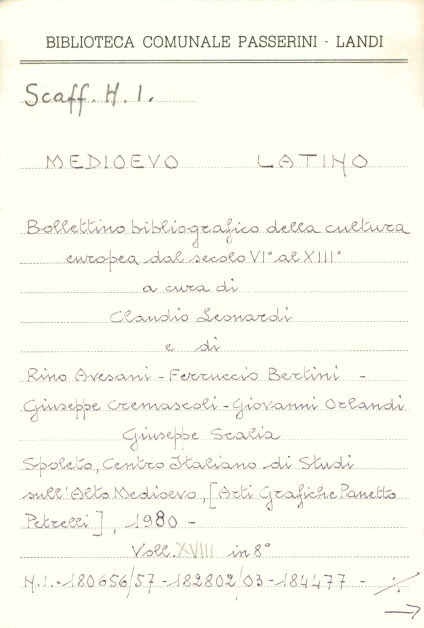 BIBLIOTECA COMUNALE PASSERINI - LANDI
Scaff. H. 1.
MEDIOEVO LATINO
Bollettino bibliografico della cultura
europea dal secolo VI° al XIII°
a cura di
Claudio Leonardi
e di
Rino Avesani - Ferruccio Bertini -
Giuseppe Cremascoli - Giovanni Orlandi
Giuseppe Scalia
Spoleto, Centro Italiano di Studi
sull'Alto Medioevo, [Arti Grafiche Panetto
Petrelli], 1980 -
Voll. XVIII in 8°
N.I.-180656/57-182802/03-184477 - ./.
→